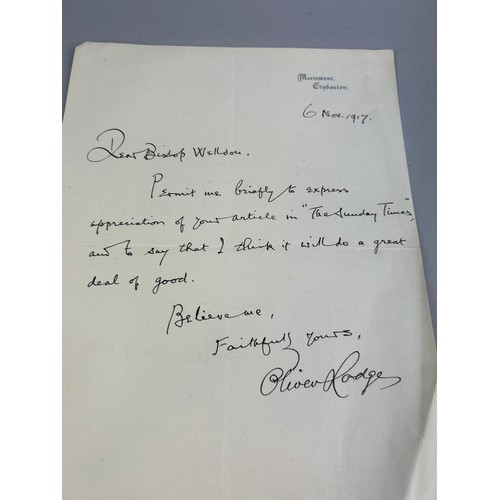 Mariemont,
Edgbaston.
6 Nov. 1917.
Dear Bishop Welldon,
Permit me briefly to express
appreciation of your article in "The Sunday Times",
and to say that I think it will do a great
deal of good.
Believe me,
Faithfully yours,
Oliver Lodge